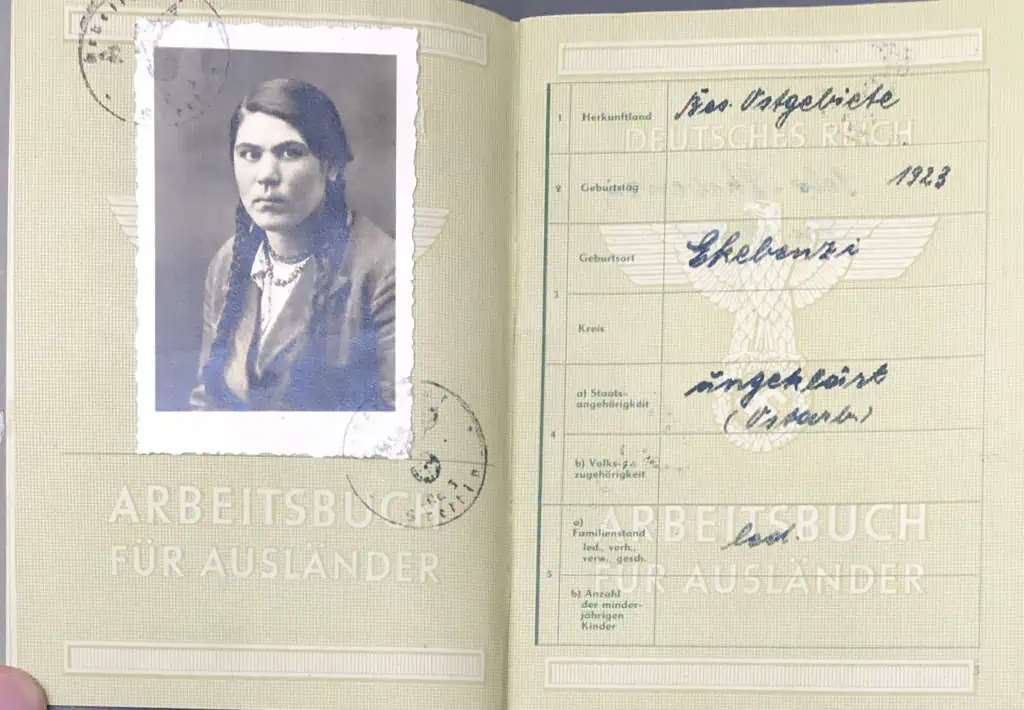 Stettin
ARBEITSBUCH
FÜR AUSLÄNDER
DEUTSCHES REICH
1 Herkunftland Bes. Ostgebiete
2 Geburtstag 1923
3 Geburtsort
Kreis
4 a) Staats-
angehörigkeit ungeklärt
(Ostarb.)
b) Volks-
zugehörigkeit
ARBEITSBUCH
FÜR AUSLÄNDER
5 a)
Familienstand led.
led., verh.,
verw., gesch.
b) Anzahl
der minder-
jährigen
Kinder